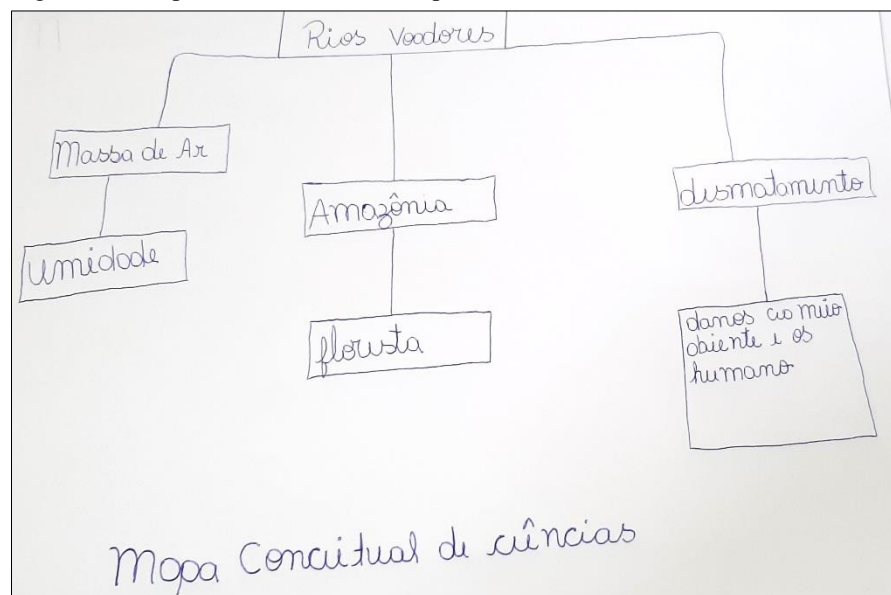 Rios Voadores
Massa de Ar
Umidade
Amazônia
floresta
desmatamento
danos ao meio
abiente e os
humano
Mapa Conceitual de ciências